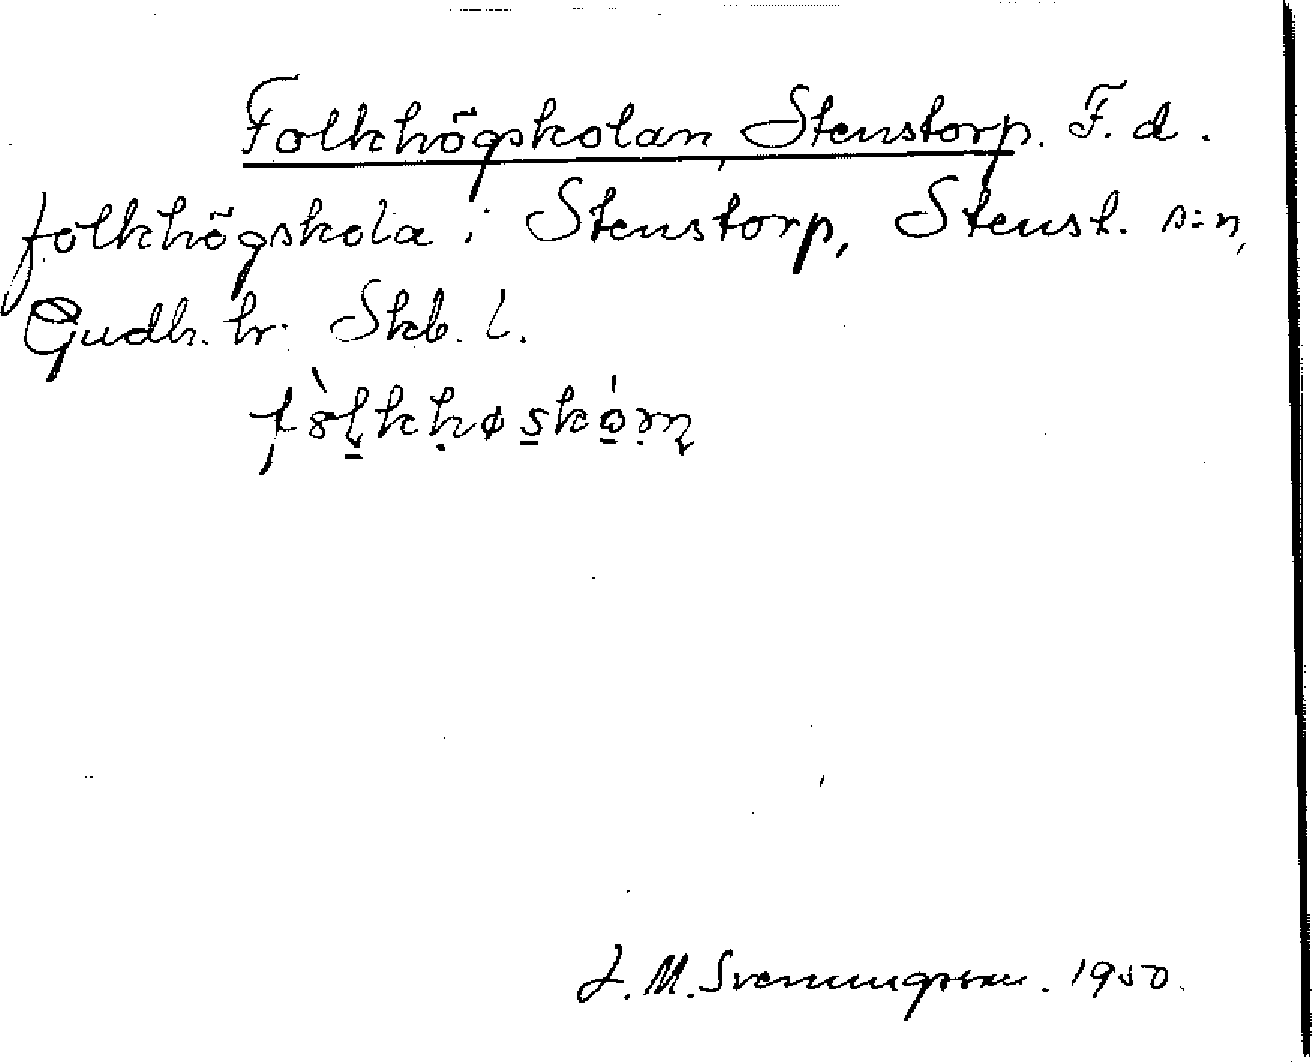 Folkhögskolan, Stenstorp. F.d.
folkhögskola i Stenstorp, Stenst. s:n,
Gudh. hr. Skb. l.
J. M. Svenningsson. 1950.